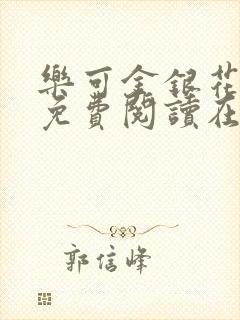 樂可金銀花
免費閱讀在
郭信峰